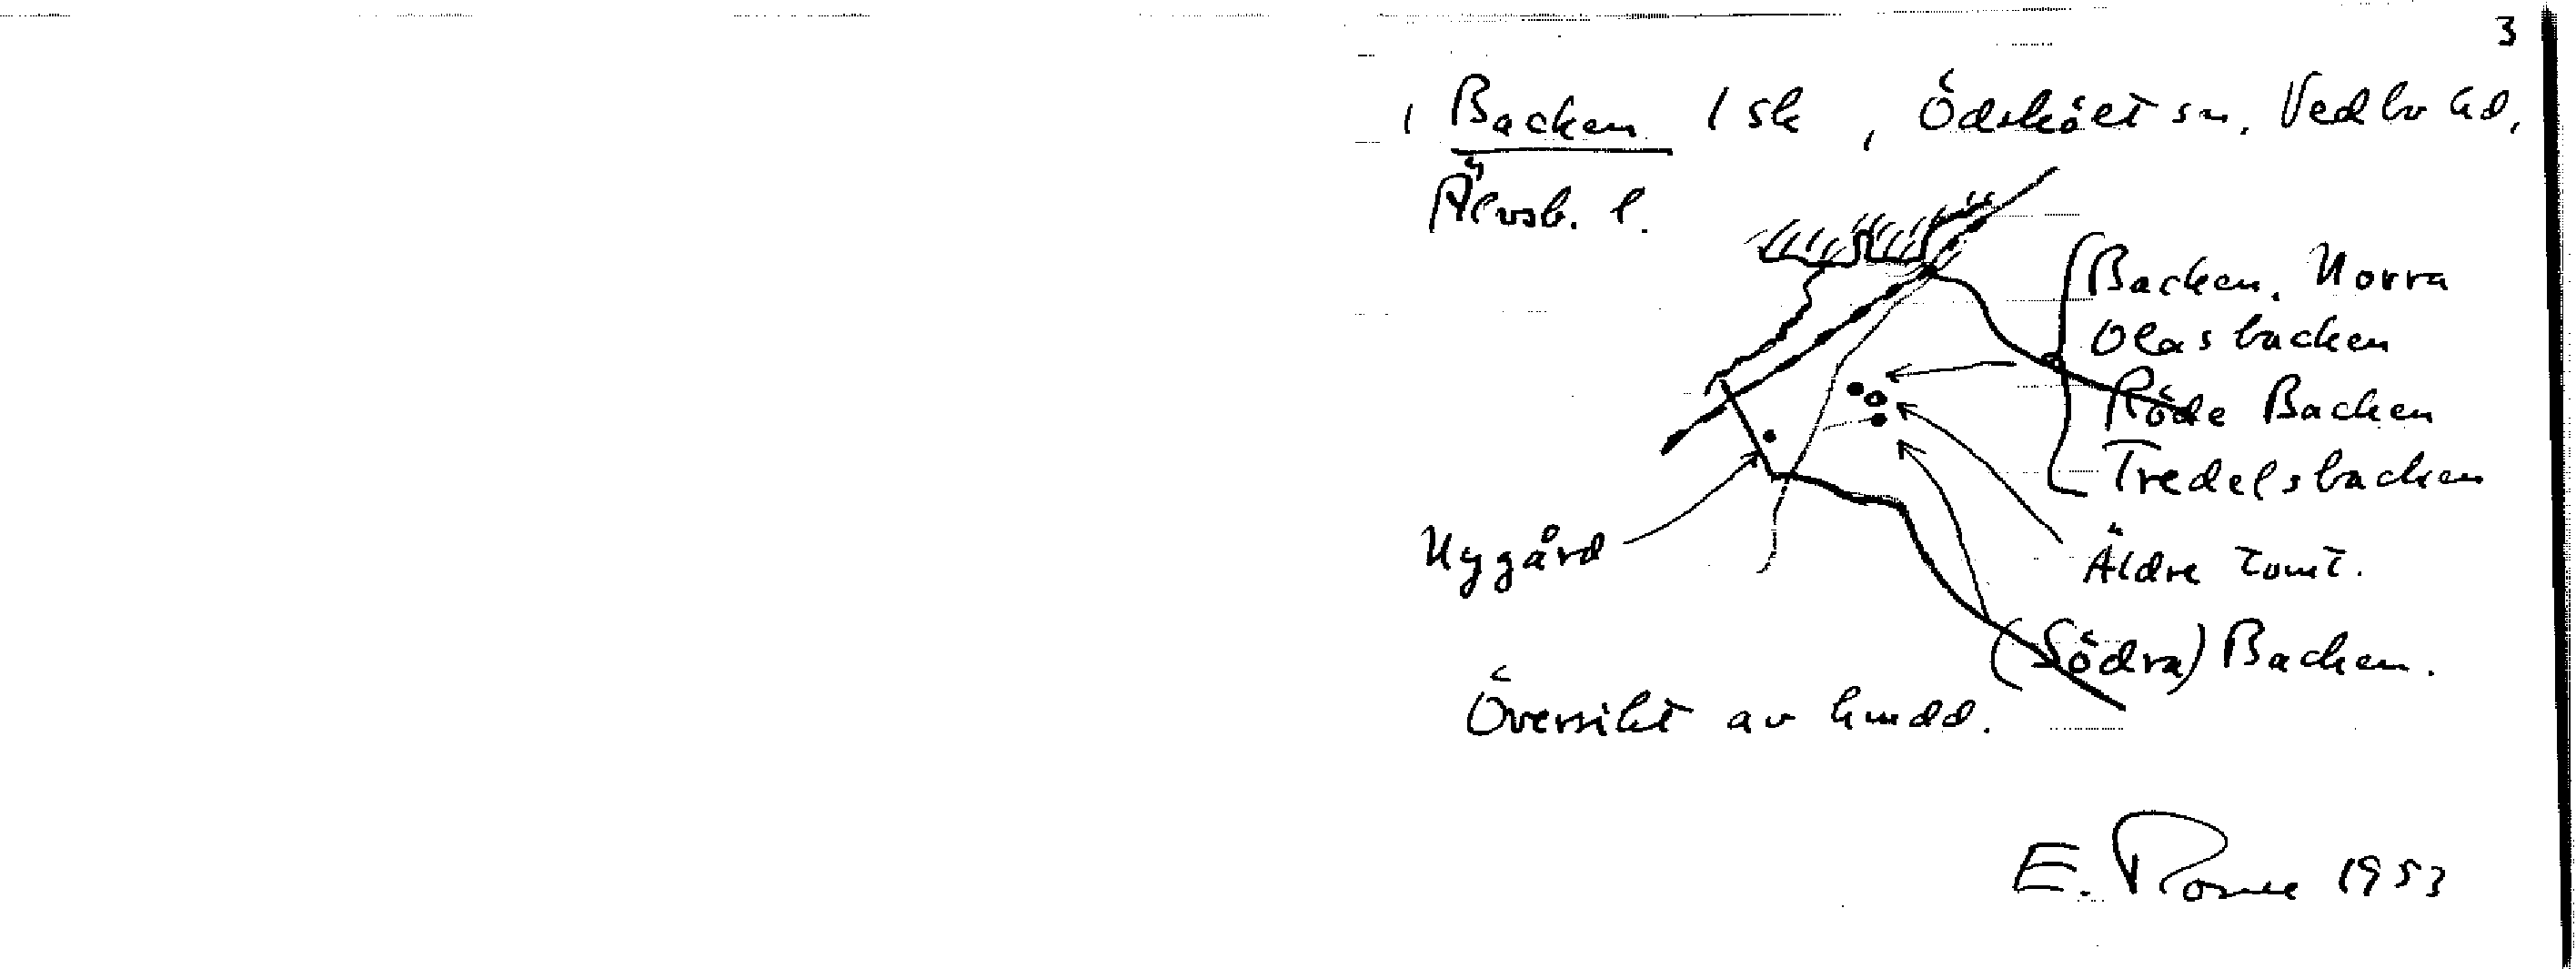 3
Backen 1 sk, Ödskölt sn, Vedbo hd,
Älvsb. l.
Backen, Norra
Olasbacken
Röde Backen
Tredelsbacken
Nygård
Äldre tomt.
(Södra) Backen.
Översikt av
E. 1953